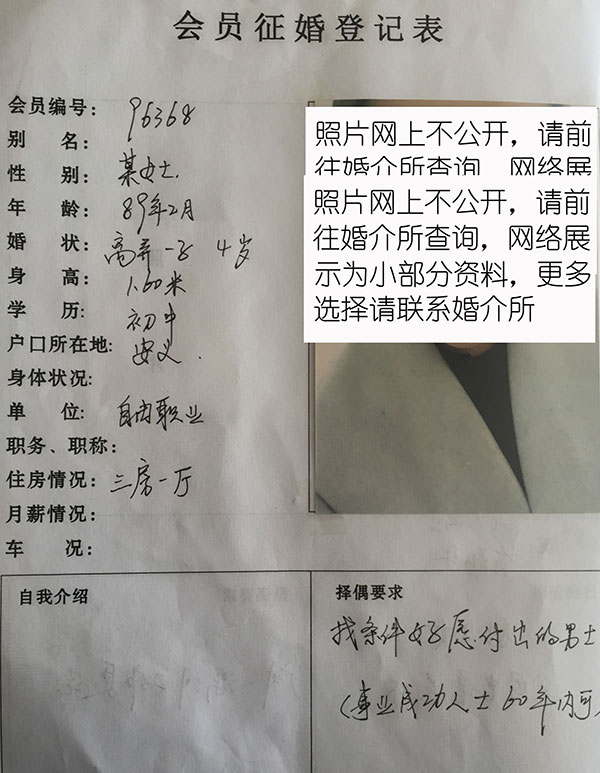 会员征婚登记表
会员编号: 96368
别 名:
性 别: 某女士.
年 龄: 89年2月
婚 状: 离异一子 4岁
身 高: 1.60米
学 历: 初中
户口所在地: 安义.
身体状况:
单 位: 自由职业
职务、职称:
住房情况: 三房一厅
月薪情况:
车 况:
照片网上不公开，请前
往婚介所查询，网络展
照片网上不公开，请前
往婚介所查询，网络展
示为小部分资料，更多
选择请联系婚介所
自我介绍
择偶要求
找条件好愿付出的男士
(事业成功人士60年内可